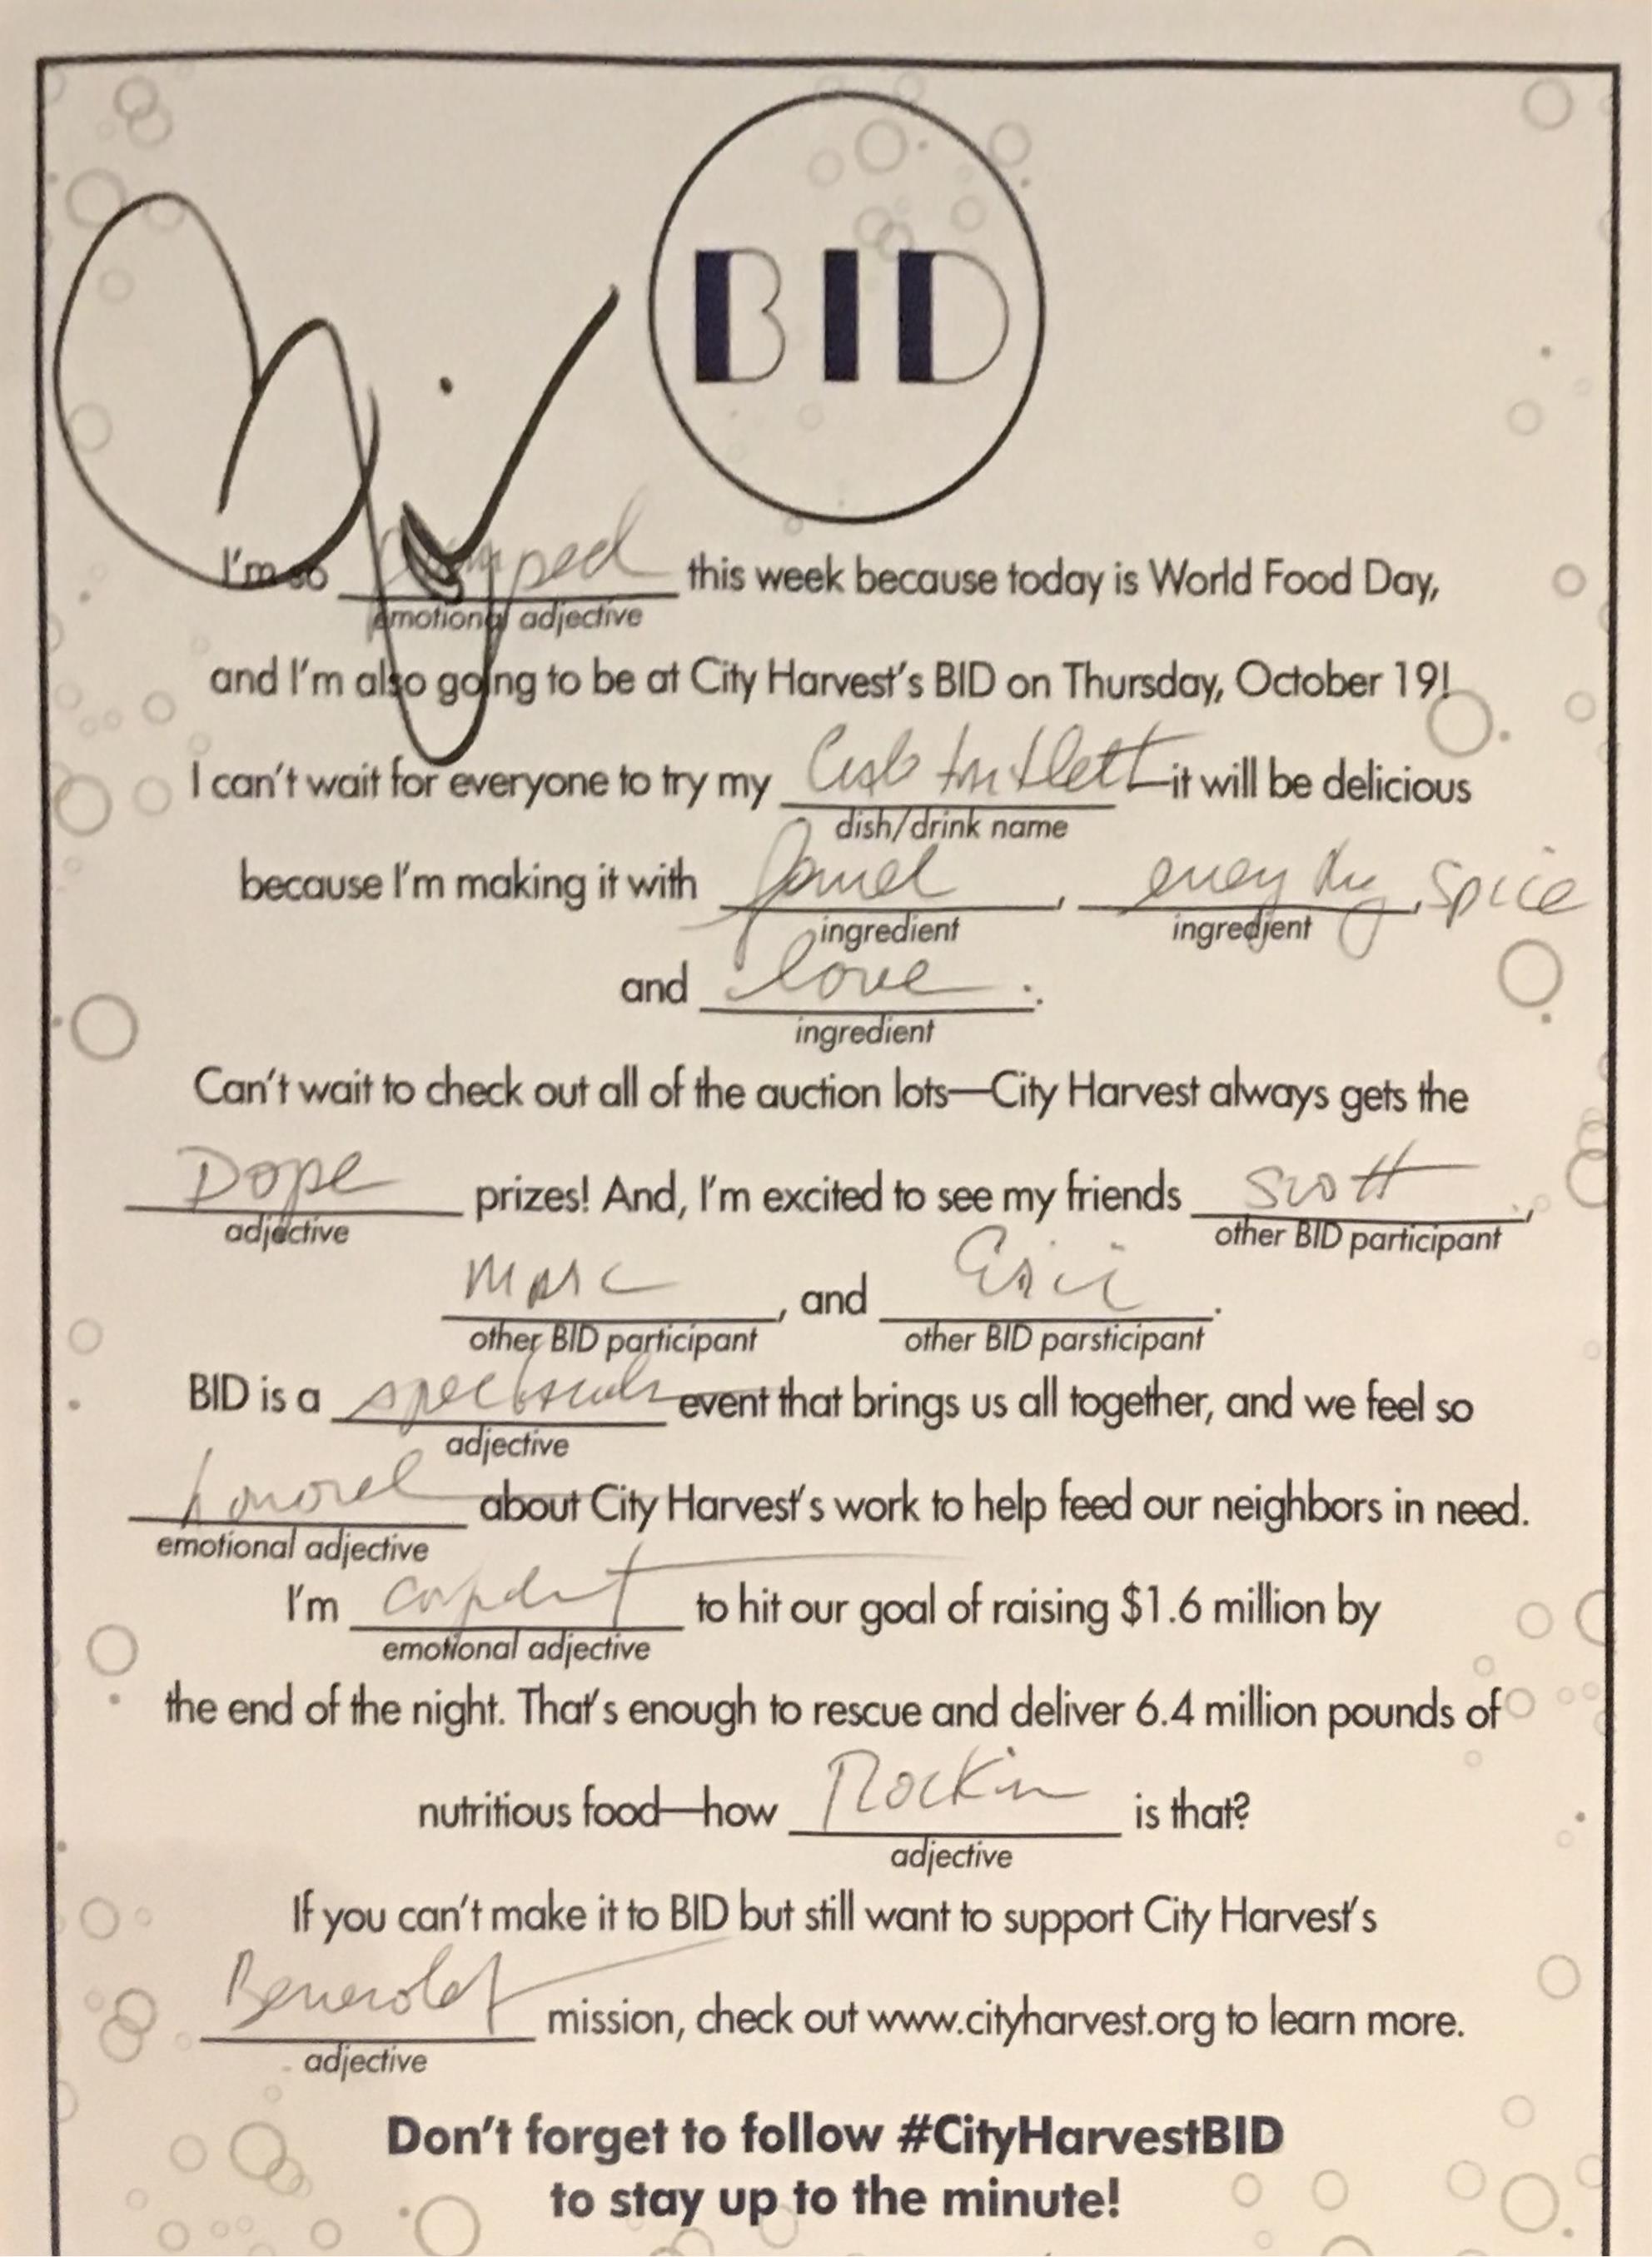 BID
I'm so pumped this week because today is World Food Day,
emotional adjective
and I'm also going to be at City Harvest's BID on Thursday, October 19!
I can't wait for everyone to try my it will be delicious
dish/drink name
because I'm making it with , every day, Spice
ingredient ingredient
and love.
ingredient
Can't wait to check out all of the auction lots—City Harvest always gets the
Dope prizes! And, I'm excited to see my friends Scott,
adjective other BID participant
Marc, and Eric.
other BID participant other BID parsticipant
BID is a spectacular event that brings us all together, and we feel so
adjective
honored about City Harvest's work to help feed our neighbors in need.
emotional adjective
I'm confident to hit our goal of raising $1.6 million by
emotional adjective
the end of the night. That's enough to rescue and deliver 6.4 million pounds of
nutritious food—how Rockin is that?
adjective
If you can't make it to BID but still want to support City Harvest's
Benevolent mission, check out www.cityharvest.org to learn more.
adjective
Don't forget to follow #CityHarvestBID
to stay up to the minute!